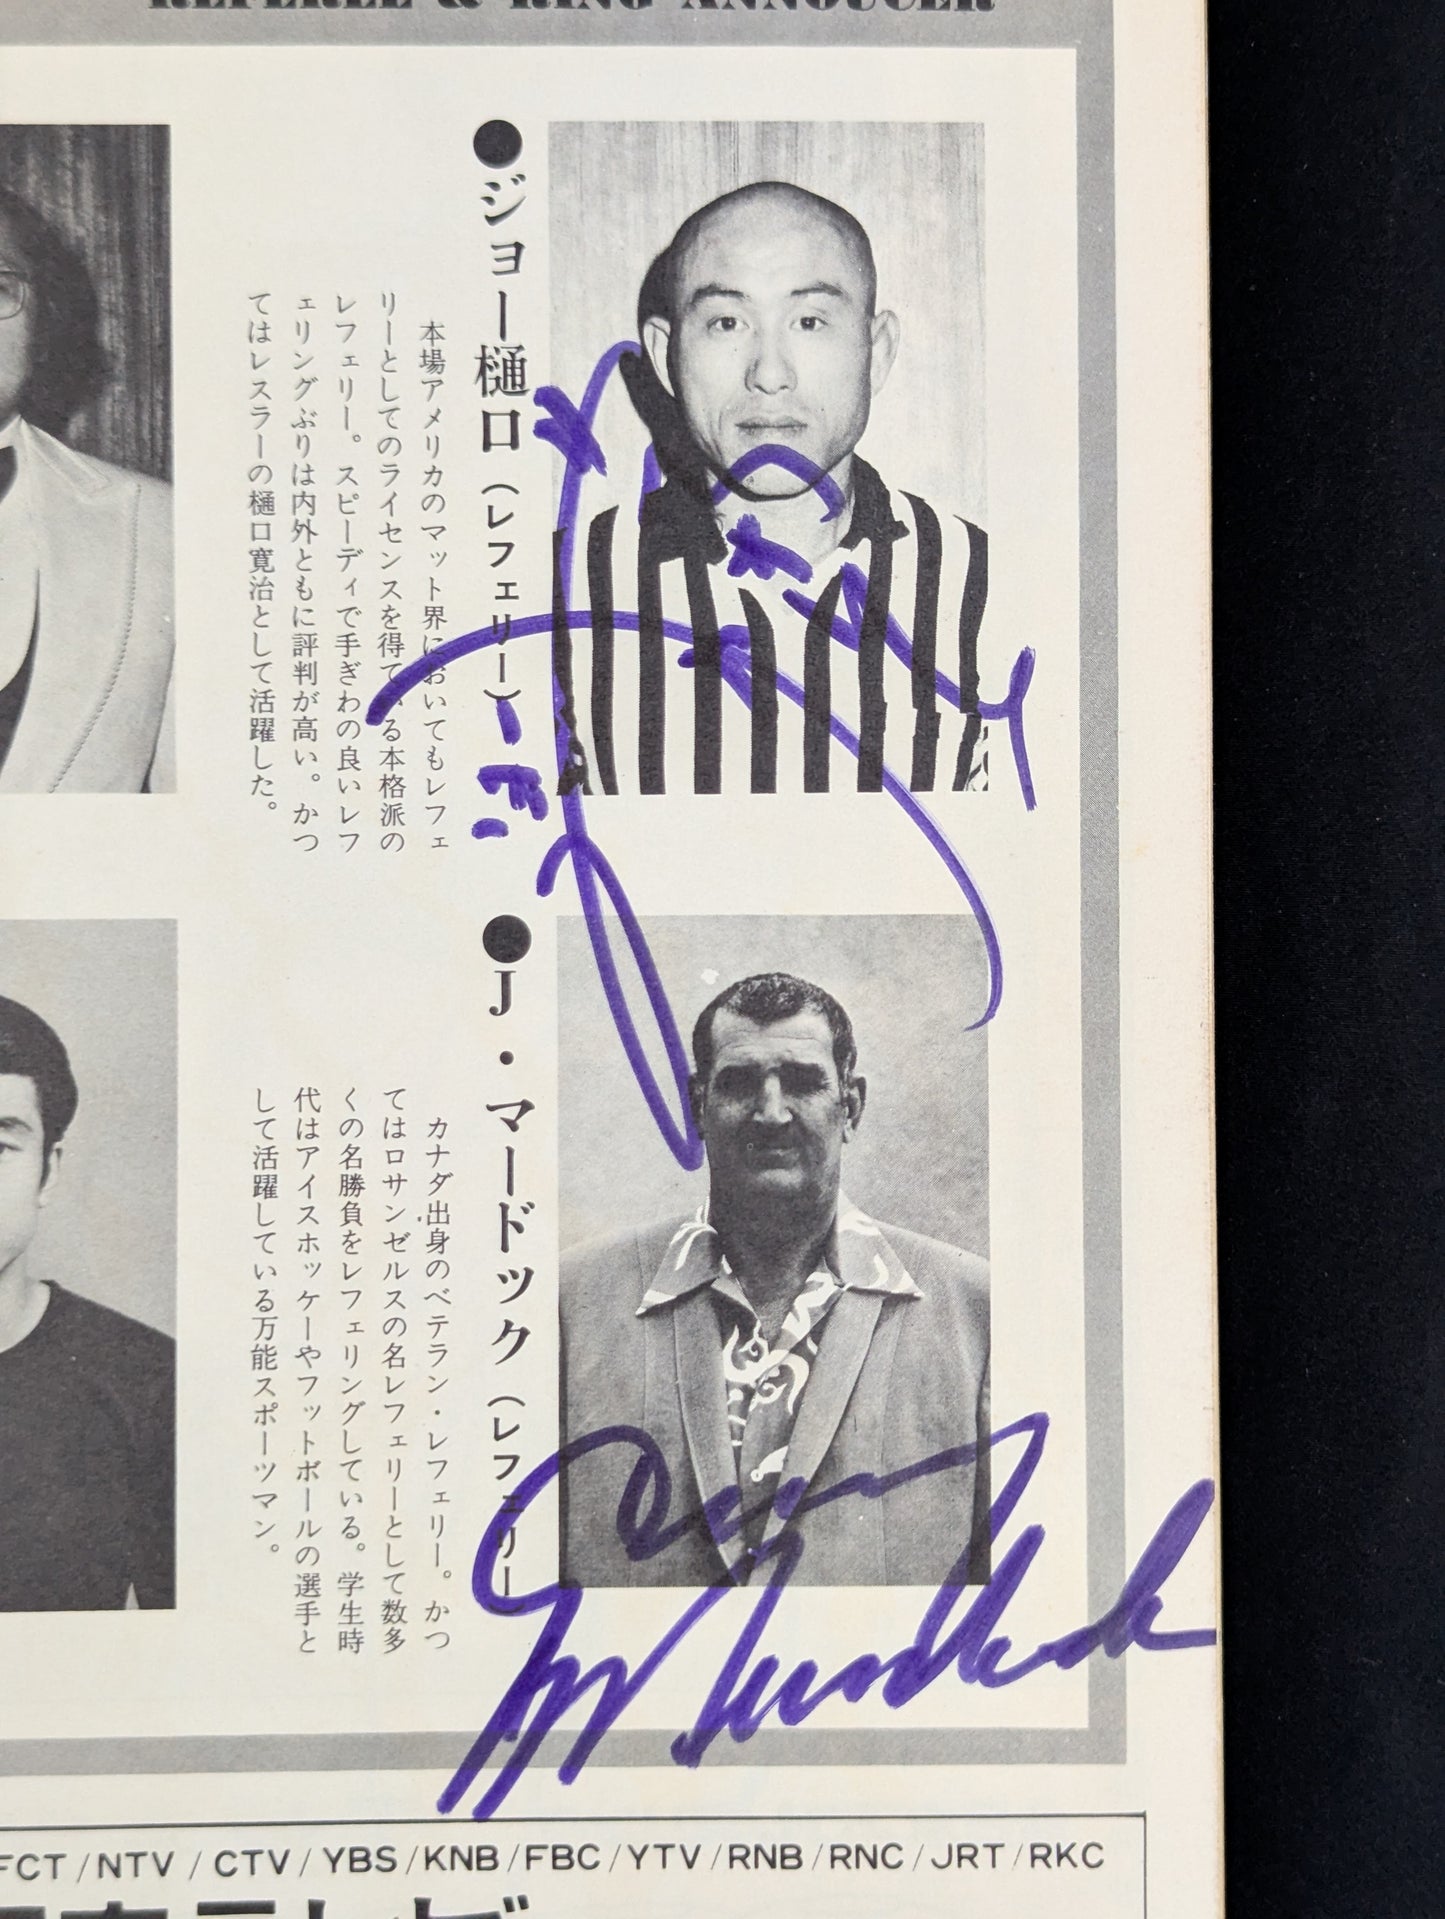 REFEREE & RING ANNOUCER
●ジョー樋口（レフェリー）
本場アメリカのマット界においてもレフェ
リーとしてのライセンスを得ている本格派の
レフェリー。スピーディで手ぎわの良いレフ
ェリングぶりは内外ともに評判が高い。かつ
てはレスラーの樋口寛治として活躍した。
●J・マードック（レフェリー）
カナダ出身のベテラン・レフェリー。かつ
てはロサンゼルスの名レフェリーとして数多
くの名勝負をレフェリングしている。学生時
代はアイスホッケーやフットボールの選手と
して活躍している万能スポーツマン。
Murdoch
FCT/NTV/CTV/YBS/KNB/FBC/YTV/RNB/RNC/JRT/RKC